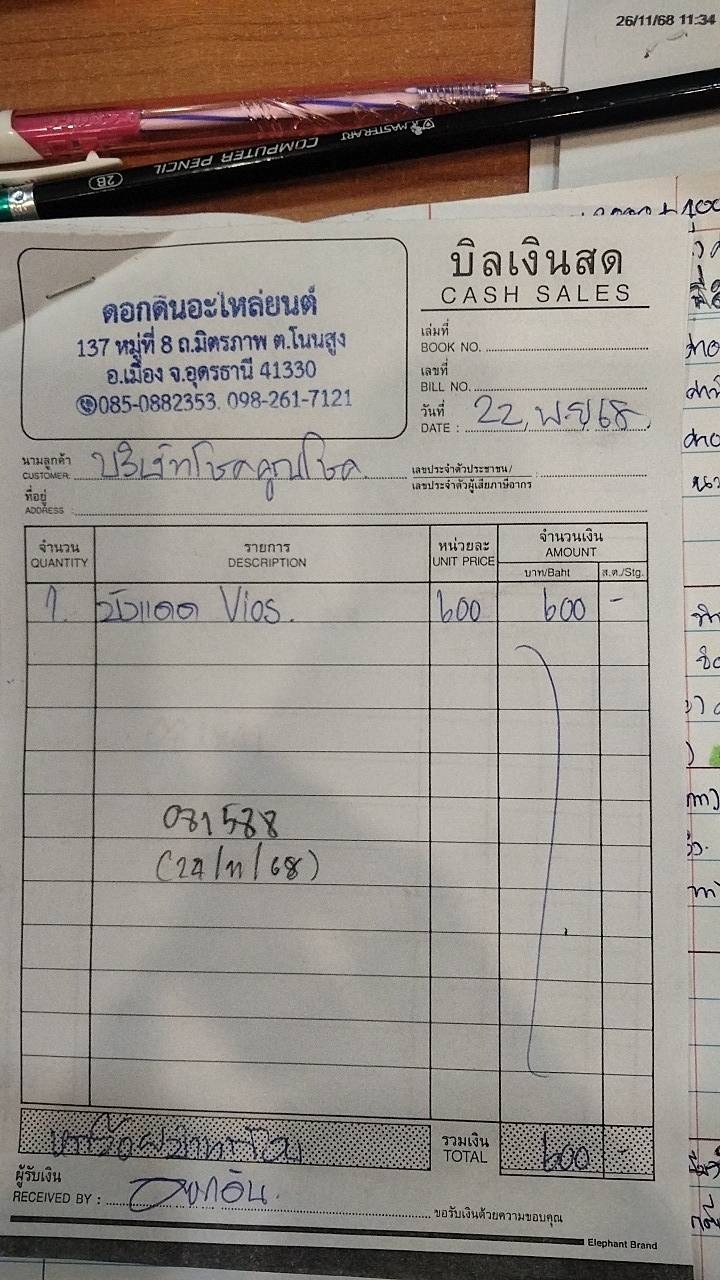 26/11/68 11:34
MASTERART COMPUTER PENCIL 2B
ดอกดินอะไหล่ยนต์
137 หมู่ที่ 8 ถ.มิตรภาพ ต.โนนสูง
อ.เมือง จ.อุดรธานี 41330
085-0882353, 098-261-7121
บิลเงินสด
CASH SALES
เล่มที่
BOOK NO.
เลขที่
BILL NO.
วันที่
DATE : 22 พ.ย 68
นามลูกค้า
CUSTOMER: บริษัทโชคคูณโชค
เลขประจำตัวประชาชน/
เลขประจำตัวผู้เสียภาษีอากร :
ที่อยู่
ADDRESS :
จำนวน รายการ หน่วยละ จำนวนเงิน
QUANTITY DESCRIPTION UNIT PRICE AMOUNT
บาท/Baht ส.ต./Stg.
1. บังแดด Vios. 600 600 -
081588
(24/11/68)
หกร้อยบาทถ้วน
รวมเงิน
TOTAL 600 -
ผู้รับเงิน
RECEIVED BY :
ขอรับเงินด้วยความขอบคุณ
Elephant Brand